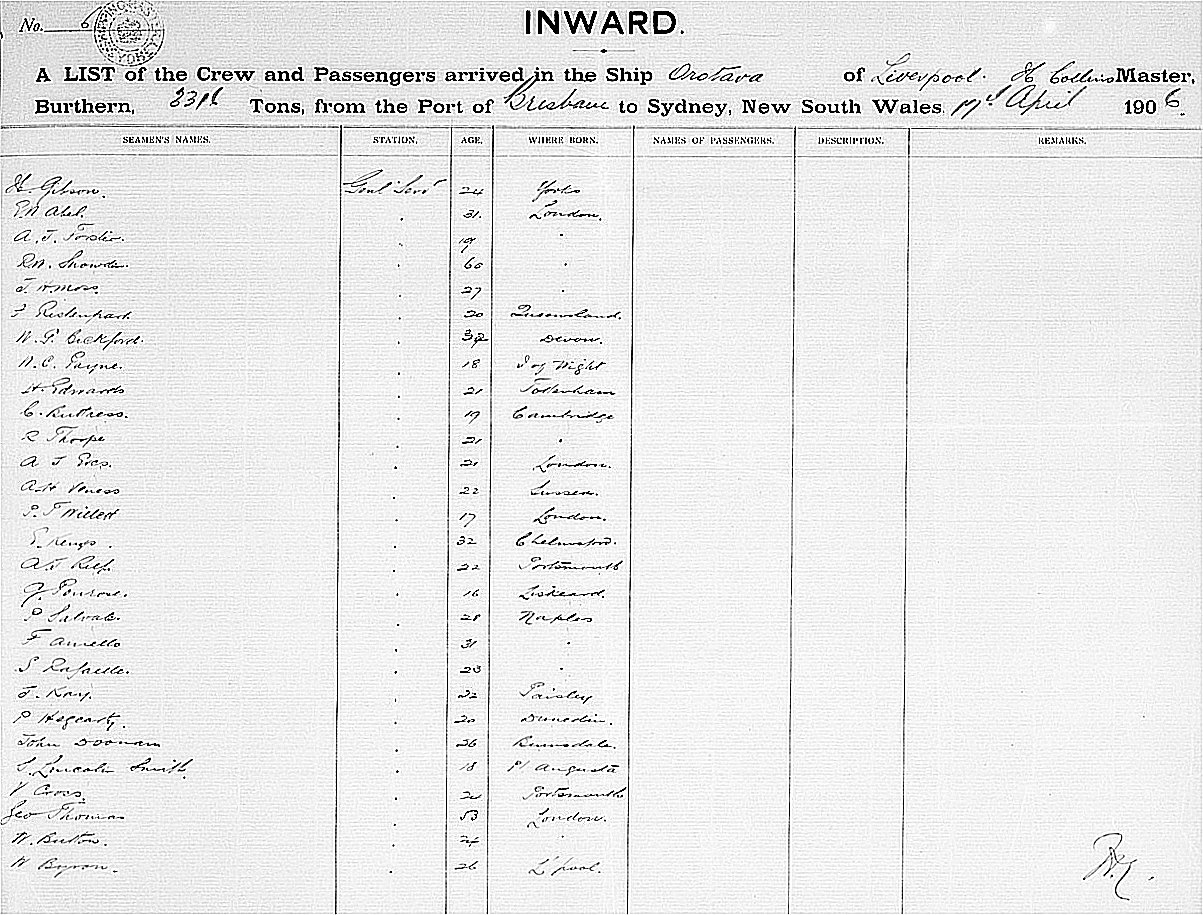 No. 6
INWARD.
A LIST of the Crew and Passengers arrived in the Ship Orotava of Liverpool. H Collins Master,
Burthern, Tons, from the Port of Brisbane to Sydney, New South Wales. April 1906.
SEAMEN'S NAMES. STATION. AGE. WHERE BORN. NAMES OF PASSENGERS. DESCRIPTION. REMARKS.
H. Gibson. Genl Servt 24 Yorks
Abel. " 31. London.
A. J. " 19 "
R.W. " 60 "
J. H. Moss. " 27 "
F " 20 Queensland.
W. G. Bickford. " Devon.
W. C. Payne. " 18 I of Wight
H. Edwards " 21 Tottenham
C. Buttress. " 19 Cambridge
R Thorpe " 21 "
A J " 21 London.
A.H Veness " 22 Sussex.
P. J Willett " 17 London.
" 32 Chelmsford.
A.J Relf. " 22 Portsmouth
J. Penrose. " 16 Liskeard.
P " 28 Naples
F Aniello " 31 "
S Rafaelle. " 23 "
J. Kay. " 22 Paisley
P Hegearty. " 20 Dunedin.
John Doonan " 26
S. Lincoln Smith. " 18 Pt Augusta
V Cross. " 21 Portsmouth
Geo Thomas " 53 London.
W. " 24 "
W Byron. " 26 L'pool.